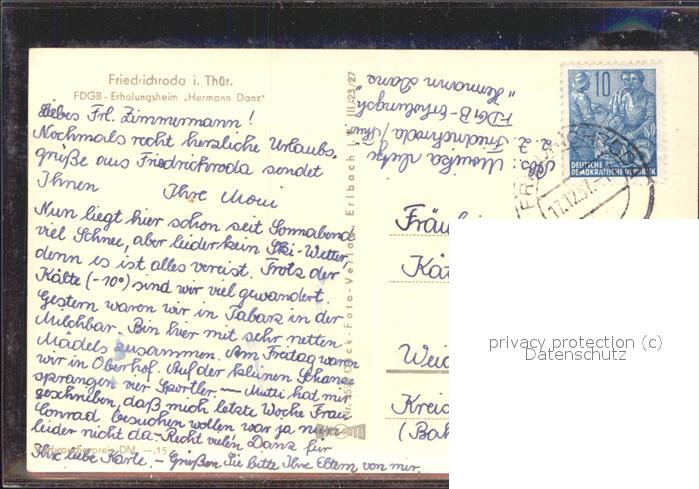 Friedrichroda i. Thür.
FDGB - Erholungsheim „Hermann Danz"
Liebes Frl. Zimmermann!
Nochmals recht herzliche Urlaubs-
grüße aus Friedrichroda sendet
Ihnen Ihre Moni
Nun liegt hier schon seit Sonnabend
viel Schnee, aber leider kein Ski-Wetter,
denn es ist alles vereist. Trotz der
Kälte (-10°) sind wir viel gewandert.
Gestern waren wir in Tabarz in der
Milchbar. Bin hier mit sehr netten
Mädels zusammen. Am Freitag waren
wir in Oberhof. Auf der kleinen Schanze
sprangen vier Sportler — Mutti hat mir
geschrieben, daß mich letzte Woche Frau
Conrad besuchen wollen war ja nun
leider nicht da. - Recht vielen Dank für
Ihre liebe Karte. - Grüßen Sie bitte Ihre Eltern von mir.
Verbraucherpreis DM —,15
Foto-Verlag Erlbach i. V. III/23/27
Abs.: Monika
z. Z. Friedrichroda/Thür
FDGB-Erholungsh.
„Hermann Danz"
10
DEUTSCHE
DEMOKRATISCHE REPUBLIK
17.12.57
Fräu
Kät
Weid
Kreis
(Bah
privacy protection (c)
Datenschutz